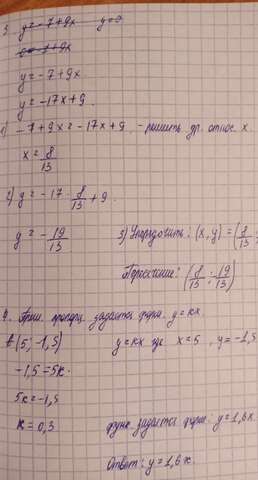 3. y = -7+9x y=0
0=-7+9x
y = -7+9x
y = -17x+9
1) -7+9x = -17x+9 - решить ур. относ. x.
x = 8/13
2) y = -17 · 8/13 + 9.
y = - 19/13 3) Упорядочить: (x, y) = (8/13
Пересечение: (8/13 ; 19/13)
4. Прям. пропорц. задаётся форм. y = kx.
(5; -1,5) y = kx где x = 5, y = -1,5
-1,5 = 5k.
5k = -1,5
k = 0,3 функ. задаётся форм. y = 1,6x.
Ответ: y = 1,6x.